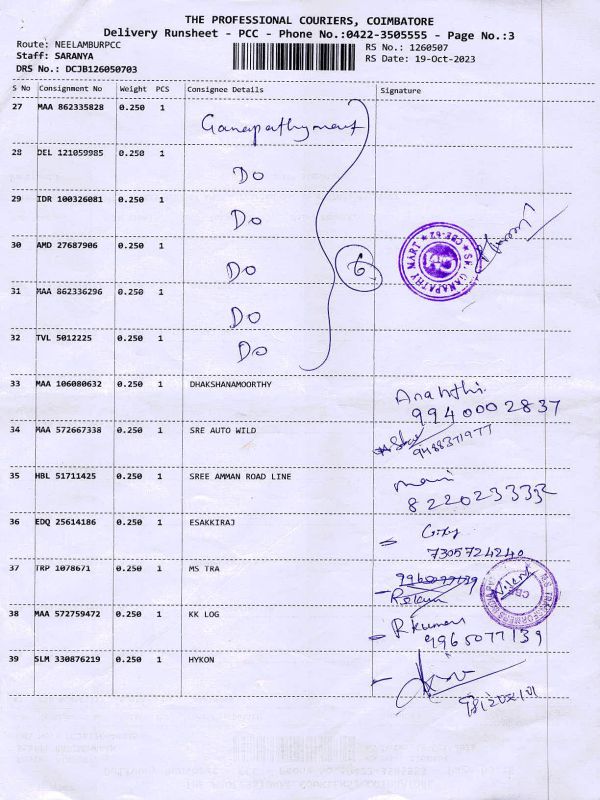 THE PROFESSIONAL COURIERS, COIMBATORE
Delivery Runsheet - PCC - Phone No.:0422-3505555 - Page No.:3
Route: NEELAMBURPCC
Staff: SARANYA
DRS No.: DCJB126050703
RS No.: 1260507
RS Date: 19-Oct-2023
S No Consignment No Weight PCS Consignee Details Signature
27 MAA 862335828 0.250 1 Ganapathymart
28 DEL 121059985 0.250 1 DO
29 IDR 100326081 0.250 1 DO
30 AMD 27687906 0.250 1 DO
6
SK. GANAPATHY MART ★ CBE-62 ★
31 MAA 862336296 0.250 1 DO
32 TVL 5012225 0.250 1 DO
33 MAA 106080632 0.250 1 DHAKSHANAMOORTHY
9940002837
34 MAA 572667338 0.250 1 SRE AUTO WILD
9488371977
35 HBL 51711425 0.250 1 SREE AMMAN ROAD LINE
mani
8220233332
36 EDQ 25614186 0.250 1 ESAKKIRAJ
7305724240
37 TRP 1078671 0.250 1 MS TRA
38 MAA 572759472 0.250 1 KK LOG
R kumar
9965077139
39 SLM 330876219 0.250 1 HYKON